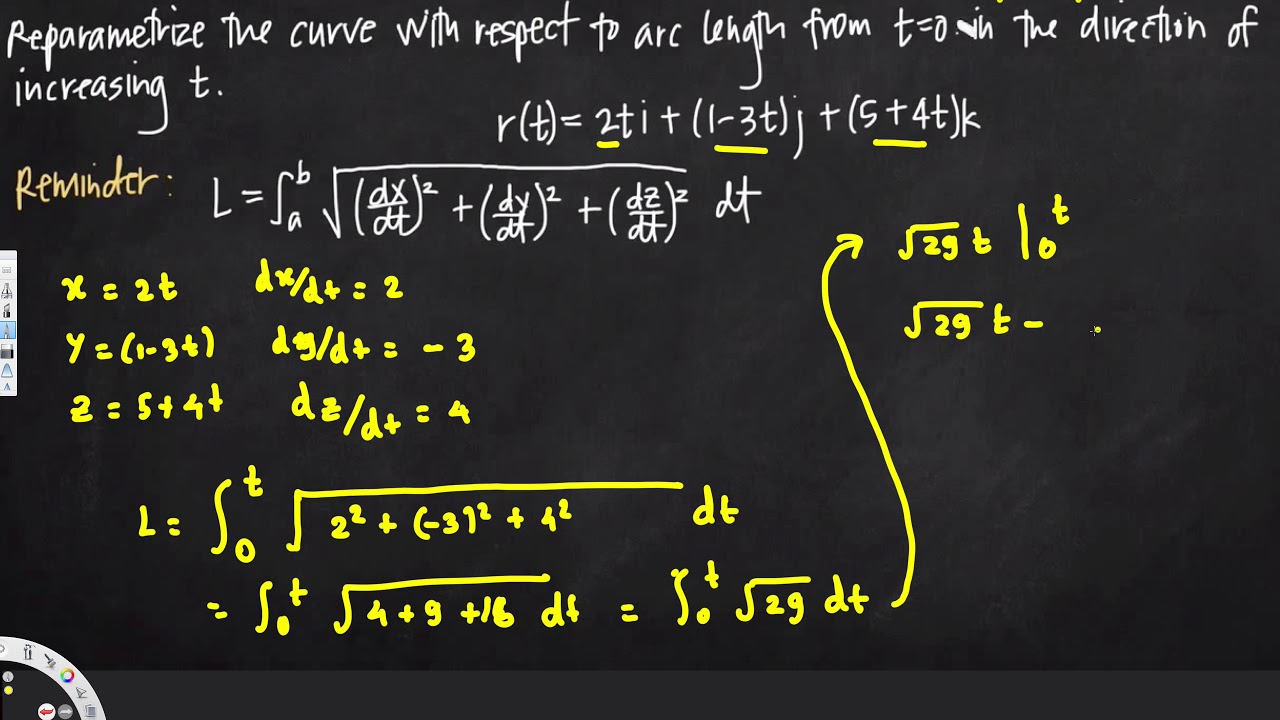 Reparametrize the curve with respect to arc length from t=0 in the direction of
increasing t.
r(t) = 2ti + (1-3t)j + (5+4t)k
Reminder: L = ∫_a^b √((dx/dt)² + (dy/dt)² + (dz/dt)²) dt
x = 2t dx/dt = 2
y = (1-3t) dy/dt = -3
z = 5+4t dz/dt = 4
L = ∫_0^t √(2² + (-3)² + 4²) dt
= ∫_0^t √(4+9+16) dt = ∫_0^t √29 dt
√29 t |_0^t
√29 t -